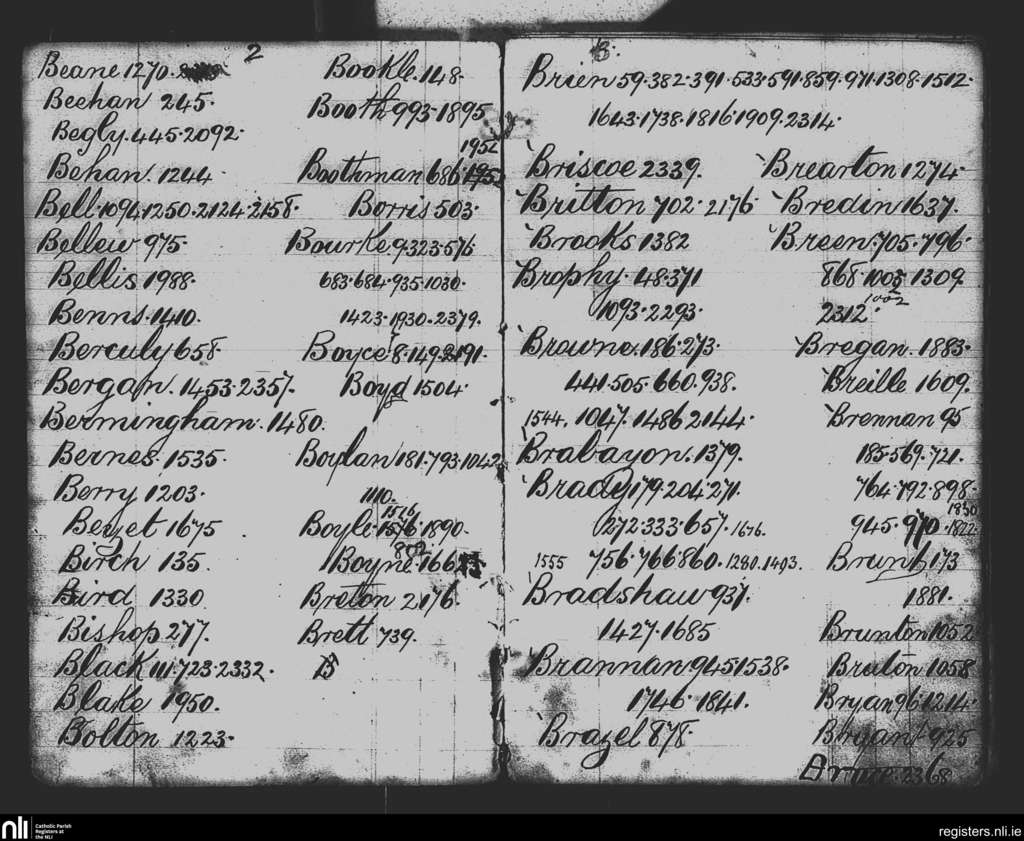 2
Beane 1270.
Beehan 245.
Begly. 445. 2092.
Behan. 1244
Bell. 1094. 1250. 2124. 2158.
Bellew 975.
Bellis 1988.
Benns. 1410.
Berculy 658.
Bergan. 1453. 2357.
Bermingham. 1480.
Bernes. 1535.
Berry 1203.
Beyet 1675
Birch 135.
Bird 1330
Bishop 277.
Black 111. 723. 2332.
Blake 1950.
Bolton 1223.
Bookle. 148.
Booth 993. 1895
1952
Boothman 686. 1952
Borris 503.
Bourke. 9. 323. 576
683. 684. 935. 1030.
1423. 1930. 2379.
Boyce. 8. 149. 2191.
Boyd 1504.
Boylan 181. 793. 1042
1110.
1516
Boyle. 1576. 1890.
Boyne. 166
Breton 2176.
Brett 739.
B
B.
Brien 59. 382. 391. 533. 591. 859. 971. 1308. 1512.
1643. 1738. 1816. 1909. 2314.
Briscoe 2339.
Britton 702. 2176
Brooks 1382
Brophy. 48. 371
1093. 2293.
Browne. 186. 273.
441. 505. 660. 938.
1544. 1047. 1486 2144.
Brabazon. 1379.
Brady 179. 204. 271.
272. 333. 657. 1676.
1555 756. 766. 860. 1280. 1403.
Bradshaw 937.
1427. 1685
Brannan 945. 1538.
1746. 1841.
Brazel 878.
Brearton 1274.
Bredin 1637.
Breen. 705. 796.
868. 1005 1309.
1002
2312.
Bregan. 1883.
Breille 1609.
Brennan 95
185. 569. 721.
764. 792. 898.
1830
945. 970. 1822.
Brunt 173
1881.
Brunton 1052
Bruton 1058
Bryan 96. 1214.
Bryant 925
2368
nli
Catholic Parish
Registers at
the NLI
registers.nli.ie